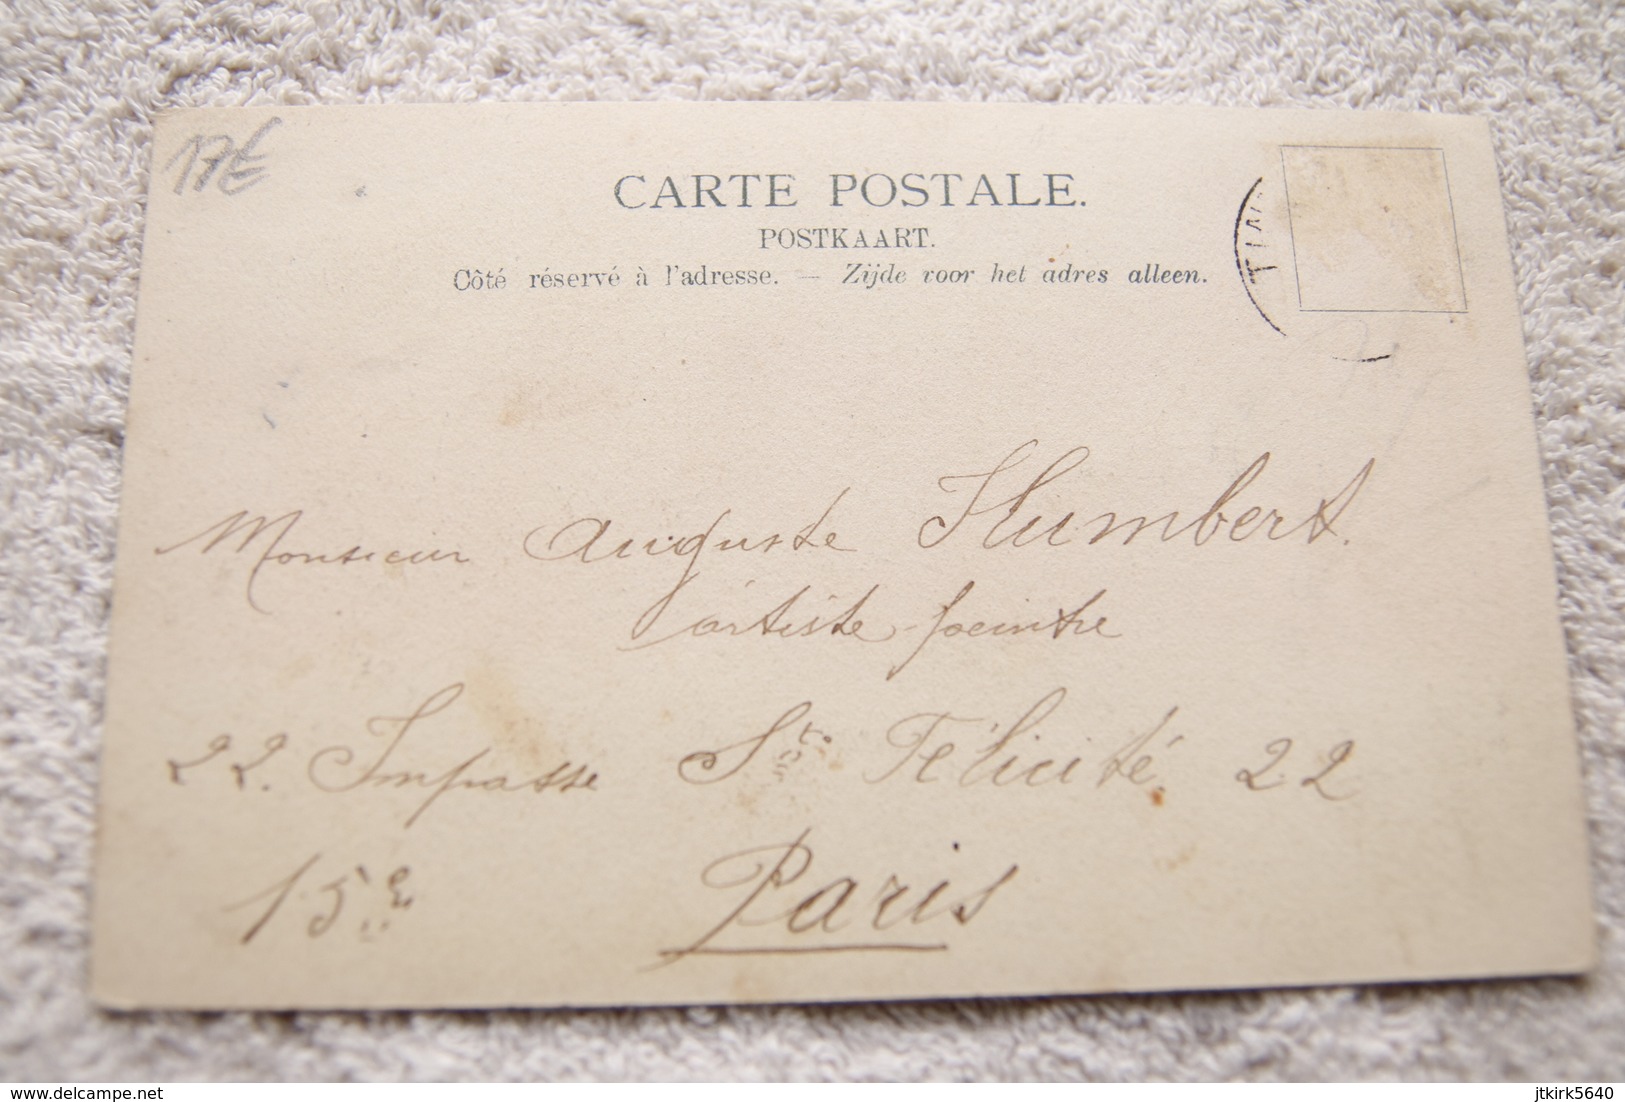 17€
CARTE POSTALE.
POSTKAART.
Côté réservé à l'adresse. — Zijde voor het adres alleen.
Monsieur Auguste Humbert.
artiste-peintre
22. Impasse Ste Félicité. 22
15e Paris
delcampe.net
jtkirk5640